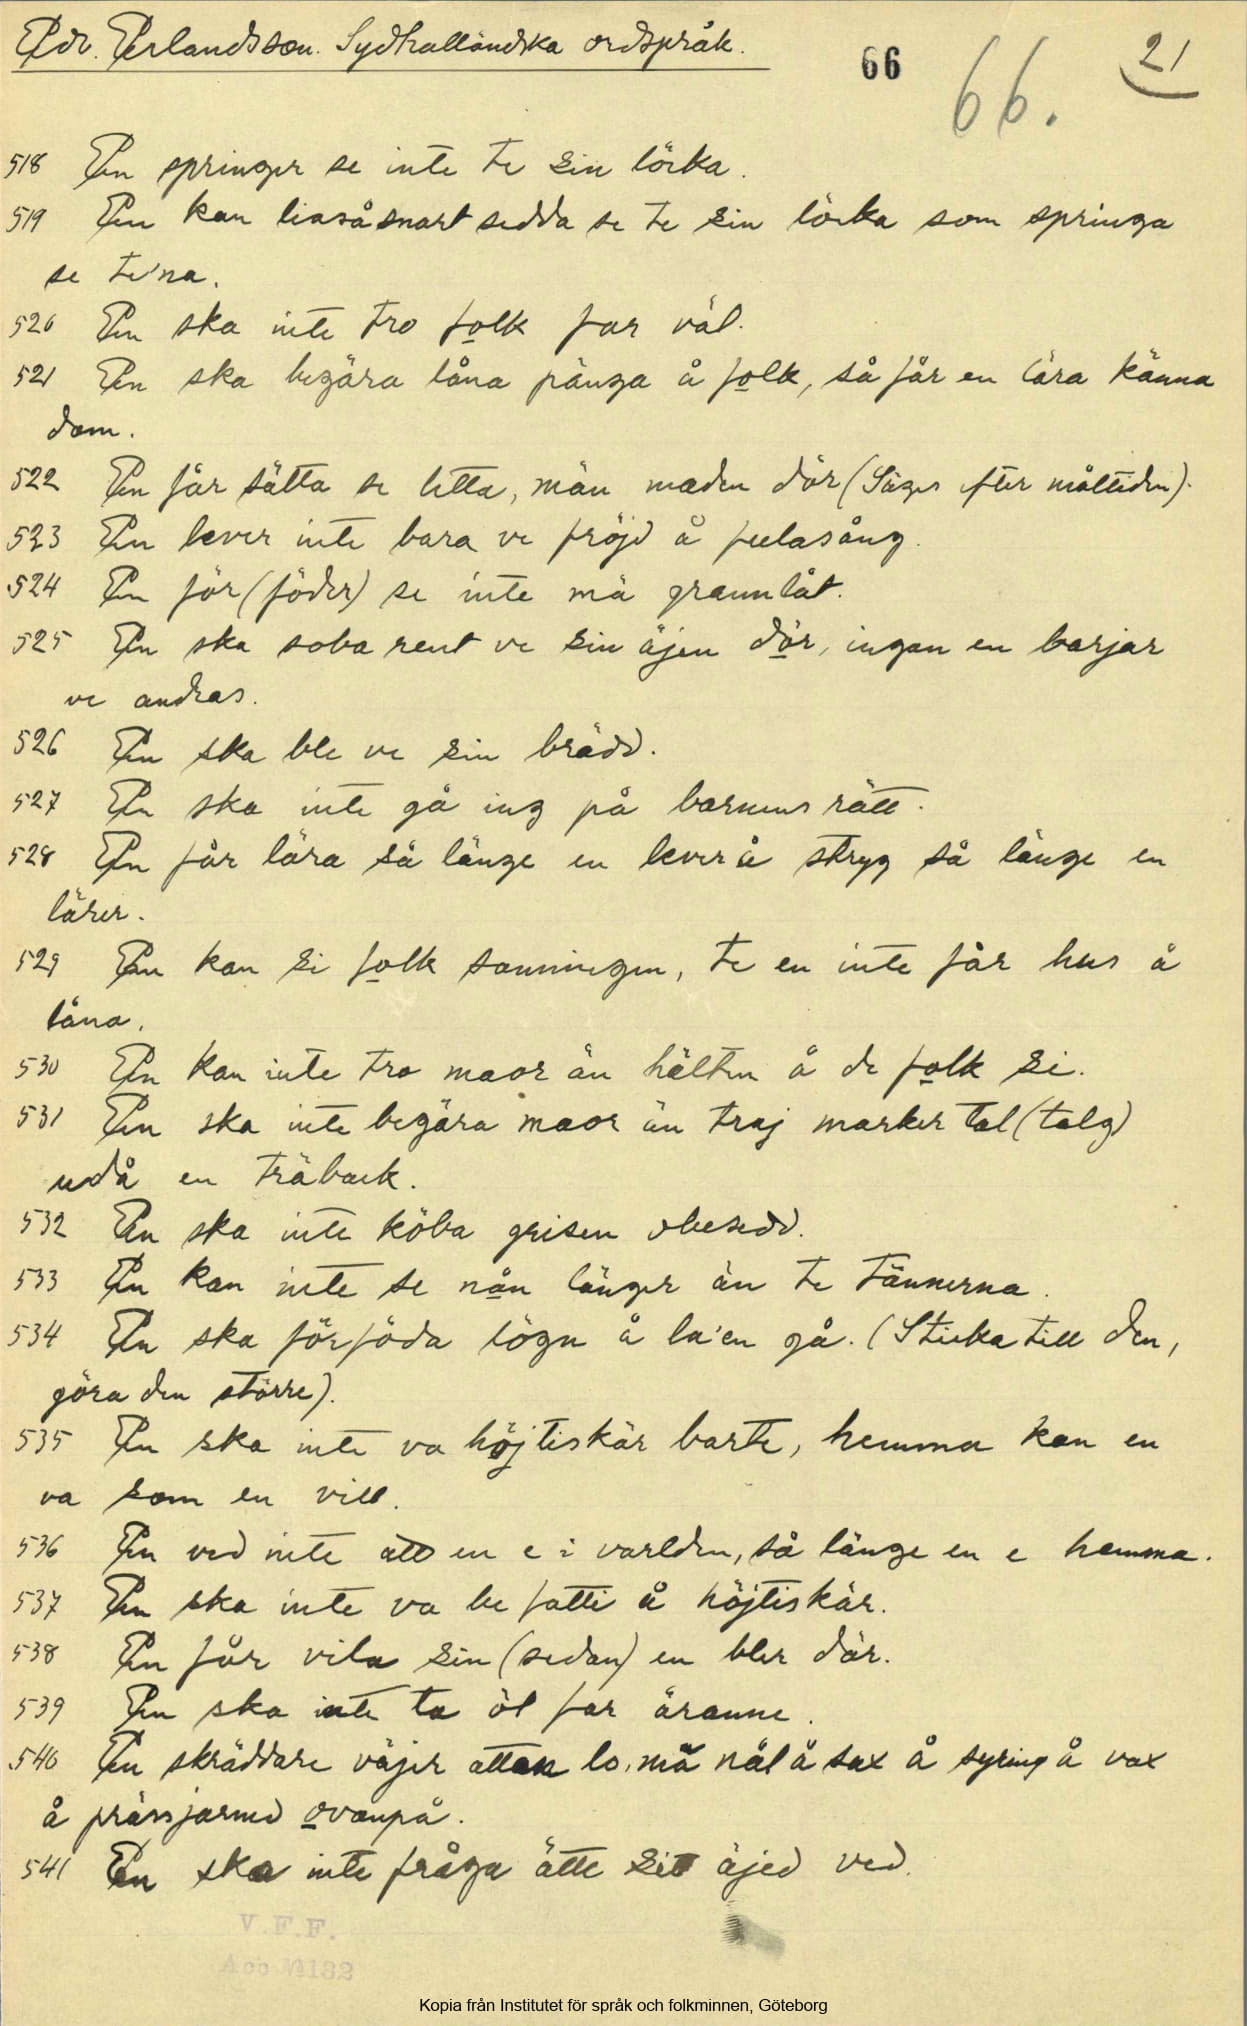 Edv. Erlandsson. Sydhalländska ordspråk.
66 66. 21
518 En springer se inte te sin löcka.
519 En kan liasåsnart sedda se te sin löcka som springa
se te'na.
520 En ska inte tro folk far väl.
521 En ska begära låna pänga å folk, så får en lära känna
dom.
522 En får sätta se letta, män maden dör (Säges efter måltiden).
523 En lever inte bara ve fröjd å feelasång.
524 En för (föder) se inte mä grannlåt.
525 En ska soba rent ve sin äjen dör, ingan en barjar
ve andras.
526 En ska ble ve sin brädd.
527 En ska inte gå ing på barnens rätt.
528 En får lära så länge en lever å stryg så länge en
lärer.
529 En kan si folk sanningen, te en inte får hus å
låna.
530 En kan inte tro maor än hälten å de folk si.
531 En ska inte begära maor än traj marker tal (talg)
udå en träbock.
532 En ska inte köba grisen obesedd.
533 En kan inte se nån länger än te tännerna.
534 En ska förföda lögn å la'en gå. (Sticka till den,
göra den större).
535 En ska inte va höjtiskär barte, hemma kan en
va som en vill.
536 En ved inte att en e i varlden, så länge en e hemma.
537 En ska inte va be fatti å höjtiskär.
538 En får vila sin (sedan) en bler dör.
539 En ska inte ta öl far äranne.
540 En skräddare väjer attan lo, mä nål å sax å syring å vax
å prässjarned ovanpå.
541 En ska inte fråga ätte sit äjed ved.
V.F.F.
Acc № 132
Kopia från Institutet för språk och folkminnen, Göteborg